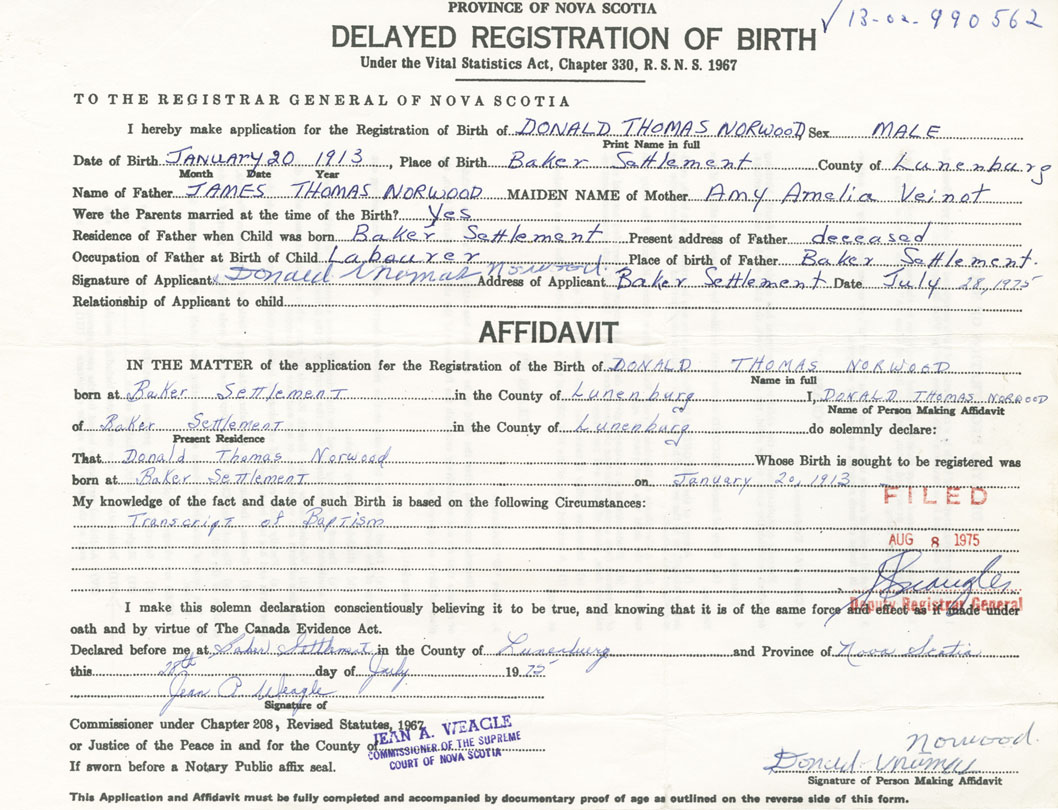 PROVINCE OF NOVA SCOTIA
√ 13-02-990562
DELAYED REGISTRATION OF BIRTH
Under the Vital Statistics Act, Chapter 330, R. S. N. S. 1967
TO THE REGISTRAR GENERAL OF NOVA SCOTIA
I hereby make application for the Registration of Birth of DONALD THOMAS NORWOOD Sex MALE
Print Name in full
Date of Birth JANUARY 20 1913, Place of Birth Baker Settlement County of Lunenburg
Month Date Year
Name of Father JAMES THOMAS NORWOOD MAIDEN NAME of Mother Amy Amelia Veinot
Were the Parents married at the time of the Birth? Yes
Residence of Father when Child was born Baker Settlement Present address of Father deceased
Occupation of Father at Birth of Child Labaurer Place of birth of Father Baker Settlement.
Signature of Applicant Donald Thomas Norwood. Address of Applicant Baker Settlement Date July 28, 1975
Relationship of Applicant to child
AFFIDAVIT
IN THE MATTER of the application for the Registration of the Birth of DONALD THOMAS NORWOOD
Name in full
born at Baker Settlement in the County of Lunenburg I, DONALD THOMAS NORWOOD
Name of Person Making Affidavit
of Baker Settlement in the County of Lunenburg do solemnly declare:
Present Residence
That Donald Thomas Norwood Whose Birth is sought to be registered was
born at Baker Settlement on January 20, 1913
My knowledge of the fact and date of such Birth is based on the following Circumstances:
FILED
Transcript of Baptism
AUG 8 1975
Deputy Registrar General
I make this solemn declaration conscientiously believing it to be true, and knowing that it is of the same force and effect as if made under
oath and by virtue of The Canada Evidence Act.
Declared before me at Baker Settlement in the County of Lunenburg and Province of Nova Scotia
this 28th day of July 1975
Jean A. Weagle
Signature of
Commissioner under Chapter 208, Revised Statutes, 1967,
or Justice of the Peace in and for the County of
JEAN A. VEAGLE
COMMISSIONER OF THE SUPREME
COURT OF NOVA SCOTIA
If sworn before a Notary Public affix seal.
Norwood.
Donald Thomas
Signature of Person Making Affidavit
This Application and Affidavit must be fully completed and accompanied by documentary proof of age as outlined on the reverse side of this form.